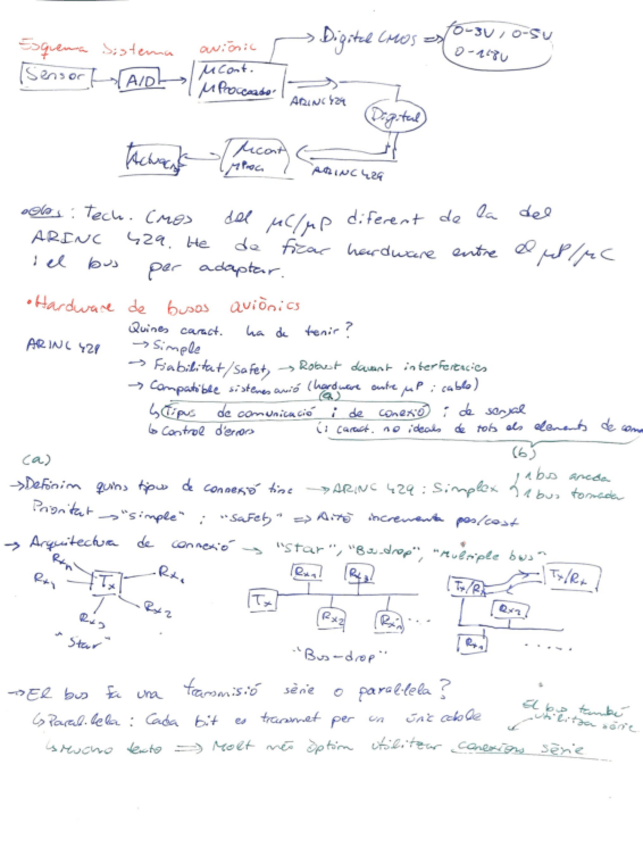 Esquema sistema aviònic → Digital CMOS ⇒ 0-3V / 0-5V
0-1.8V
Sensor → A/D → μCont. μProcessador ARINC 429 Digital
Actuac. μCont μProc ARINC 429
Obs: Tech. CMOS del μC/μP diferent de la del
ARINC 429. He de fizar hardware entre el μP/μC
i el bus per adaptar.
• Hardware de busos aviònics
Quines caract. ha de tenir?
ARINC 429 → Simple
→ Fiabilitat/Safety → Robust davant interferències
→ Compatible sistemes avió (hardware entre μP i cable)
(a)
↳ Tipus de comunicació i de conexió i de senyal
↳ Control d'errors (i caract. no ideals de tots els elements de
(b)
(a)
→ Definim quins tipus de connexió tinc → ARINC 429: Simplex 1 bus anada
1 bus tornada
Prioritat → "simple" i "safety" ⇒ Això incrementa pes/cost
→ Arquitectura de connexió → "Star", "Bus-drop", "Multiple bus"
Rxn Rx1 Tx Rx1 Rx2 Rx3
"Star"
Tx Rx1 Rx3 Rx2 Rxn ...
"Bus-drop"
Tx/Rx Tx/Rx Rx2 Rx1 .....
→ El bus fa una transmisió sèrie o paral·lela?
↳ Paral·lela: Cada bit es transmet per un únic cable
El bus també utilitza sèrie
↳ Mucho texto ⇒ Molt més òptim utilitzar conexions sèrie